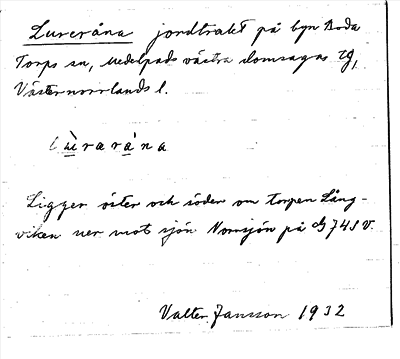 Lureråna jordtrakt på byn Boda
Torps sn, Medelpads västra domsagas tg,
Västernorrlands l.
lùraràna
Ligger öster och söder om torpen Lång-
viken ner mot sjön Nomsjön på G 74 S V.
Valter Jansson 1932